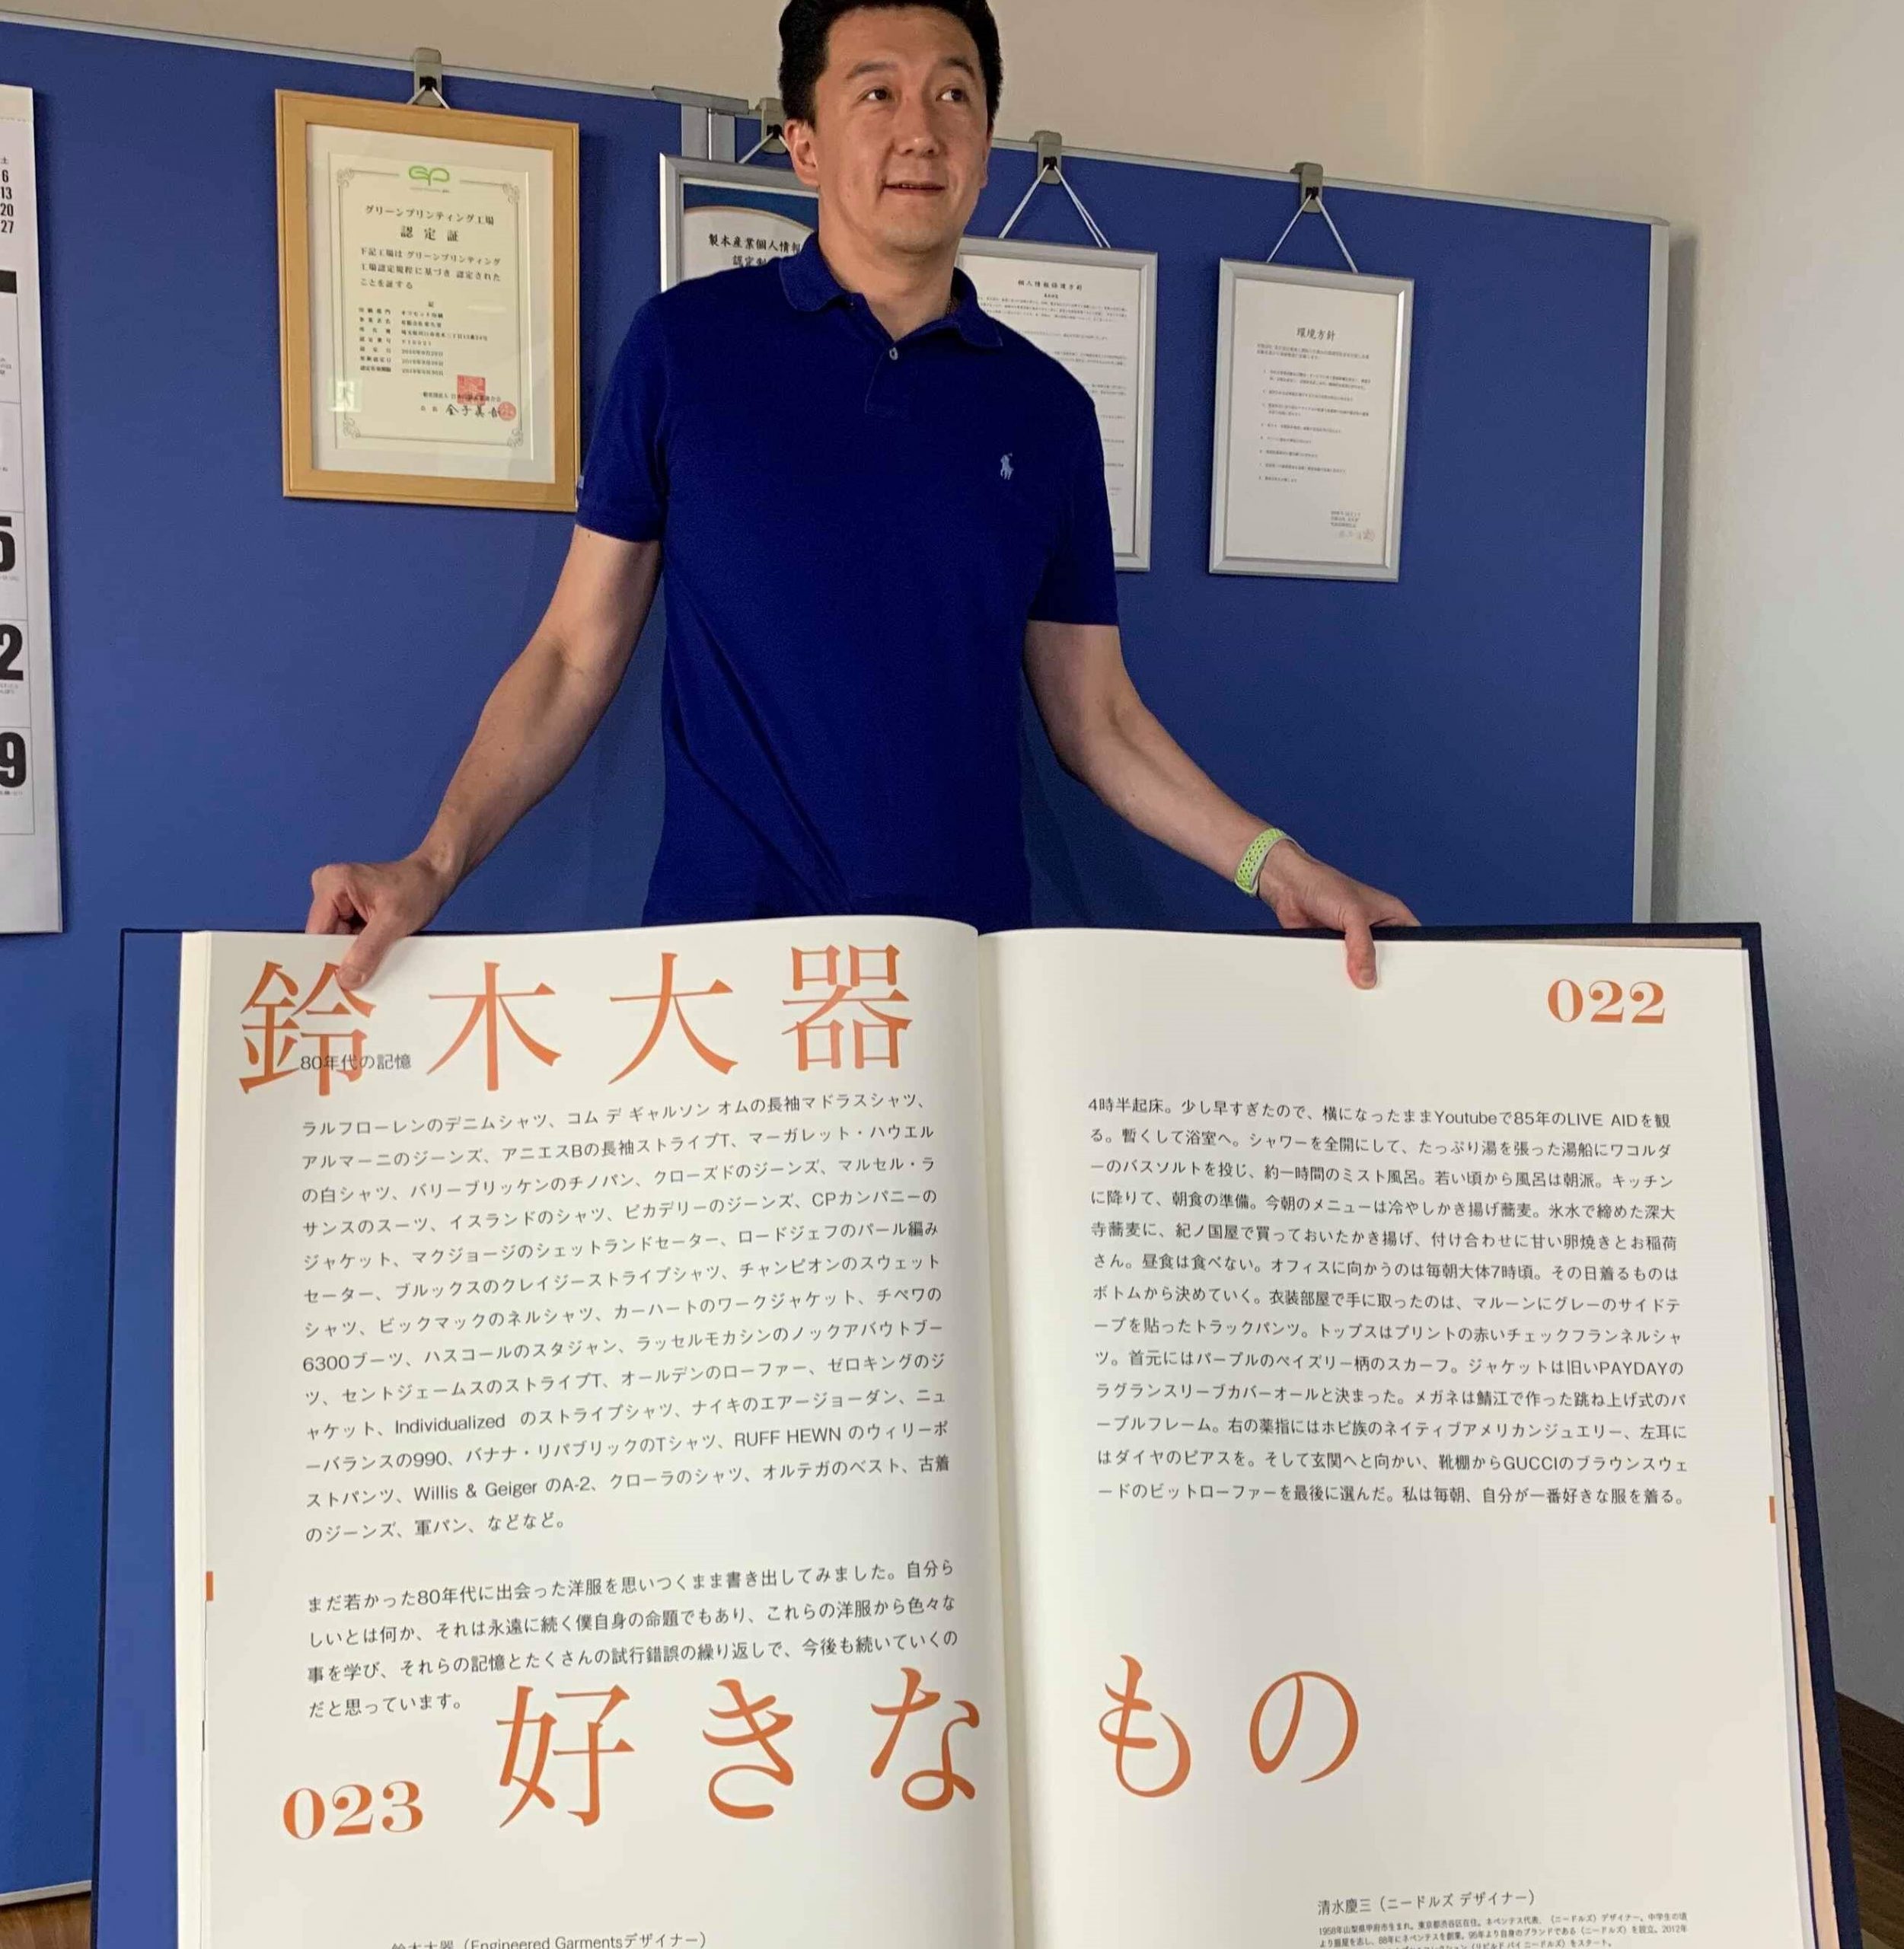 土
6
13
20
27
5
2
9
GP
グリーンプリンティング工場
認定証
下記工場は グリーンプリンティング
工場認定規程に基づき 認定された
ことを証する
記
製本産業個人情報
個人情報保護方針
環境方針
鈴木大器
80年代の記憶
ラルフローレンのデニムシャツ、コム デ ギャルソン オムの長袖マドラスシャツ、
アルマーニのジーンズ、アニエスBの長袖ストライプT、マーガレット・ハウエル
の白シャツ、バリーブリッケンのチノパン、クローズドのジーンズ、マルセル・ラ
サンスのスーツ、イスランドのシャツ、ピカデリーのジーンズ、CPカンパニーの
ジャケット、マクジョージのシェットランドセーター、ロードジェフのパール編み
セーター、ブルックスのクレイジーストライプシャツ、チャンピオンのスウェット
シャツ、ビックマックのネルシャツ、カーハートのワークジャケット、チペワの
6300ブーツ、ハスコールのスタジャン、ラッセルモカシンのノックアバウトブー
ツ、セントジェームスのストライプT、オールデンのローファー、ゼロキングのジ
ャケット、Individualized のストライプシャツ、ナイキのエアージョーダン、ニュ
ーバランスの990、バナナ・リパブリックのTシャツ、RUFF HEWN のウィリーポ
ストパンツ、Willis & Geiger のA-2、クローラのシャツ、オルテガのベスト、古着
のジーンズ、軍パン、などなど。
まだ若かった80年代に出会った洋服を思いつくまま書き出してみました。自分ら
しいとは何か、それは永遠に続く僕自身の命題でもあり、これらの洋服から色々な
事を学び、それらの記憶とたくさんの試行錯誤の繰り返しで、今後も続いていくの
だと思っています。
023
鈴木大器（Engineered Garmentsデザイナー）
022
4時半起床。少し早すぎたので、横になったままYoutubeで85年のLIVE AIDを観
る。暫くして浴室へ。シャワーを全開にして、たっぷり湯を張った湯船にワコルダ
ーのバスソルトを投じ、約一時間のミスト風呂。若い頃から風呂は朝派。キッチン
に降りて、朝食の準備。今朝のメニューは冷やしかき揚げ蕎麦。氷水で締めた深大
寺蕎麦に、紀ノ国屋で買っておいたかき揚げ、付け合わせに甘い卵焼きとお稲荷
さん。昼食は食べない。オフィスに向かうのは毎朝大体7時頃。その日着るものは
ボトムから決めていく。衣装部屋で手に取ったのは、マルーンにグレーのサイドテ
ープを貼ったトラックパンツ。トップスはプリントの赤いチェックフランネルシャ
ツ。首元にはパープルのペイズリー柄のスカーフ。ジャケットは旧いPAYDAYの
ラグランスリーブカバーオールと決まった。メガネは鯖江で作った跳ね上げ式のパ
ープルフレーム。右の薬指にはホピ族のネイティブアメリカンジュエリー、左耳に
はダイヤのピアスを。そして玄関へと向かい、靴棚からGUCCIのブラウンスウェ
ードのビットローファーを最後に選んだ。私は毎朝、自分が一番好きな服を着る。
好きなもの
清水慶三（ニードルズ デザイナー）
1958年山梨県甲府市生まれ。東京都渋谷区在住。ネペンテス代表、〈ニードルズ〉デザイナー。中学生の頃
より服屋を志し、88年にネペンテスを創業。95年より自身のブランドである〈ニードルズ〉を設立。2012年